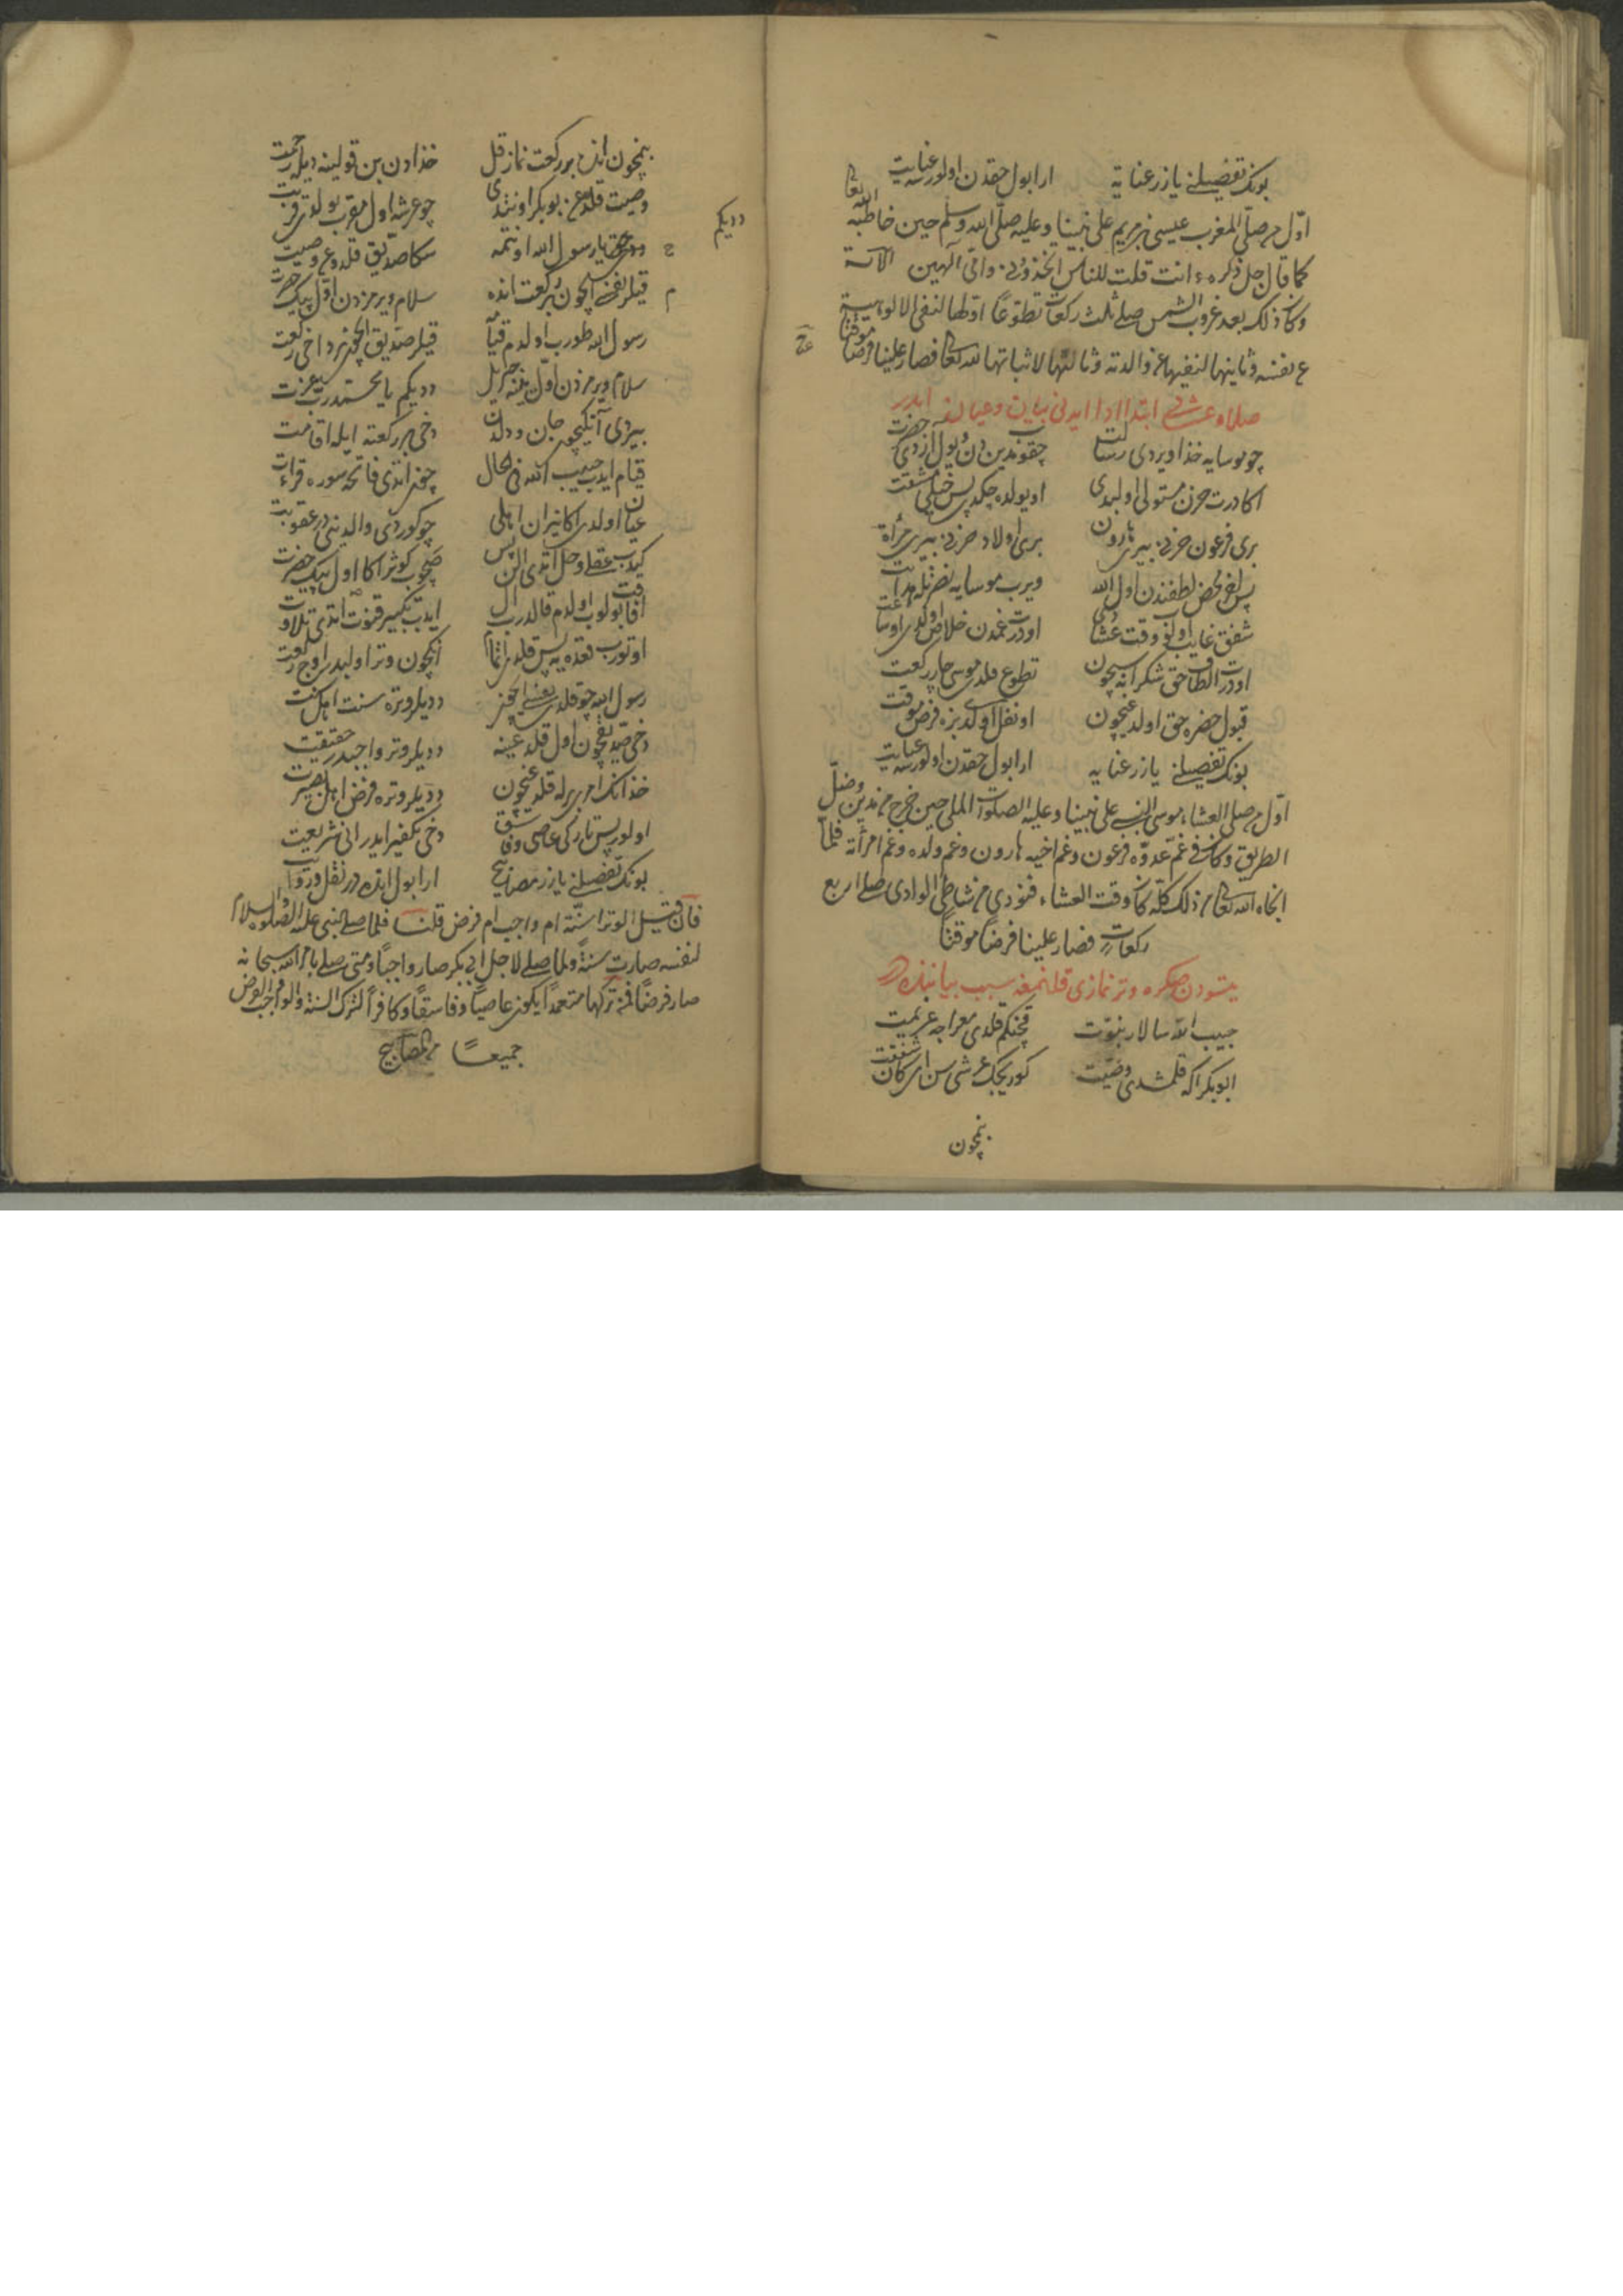 بونك تفصيلنى يازر عنايه ارا بول حقدن اولورسه عنايت
اول من صلى المغرب عيسى بن مريم على نبينا وعليه صلى الله وسلم حين خاطبه الله تعالى
كما قال جل ذكره ءانت قلت للناس اتخذونى وامى الهين الآية
وكان ذلك بعد غروب الشمس صلى ثلث ركعات تطوعا اولها لنفى الالوهية
عن نفسه وثانيها لنفيها عن والدته وثالثها لاثباتها لله تعالى فصار علينا فرضا موقتا
صلاة عشاى ابتدا ادا ايدنى بيان وعيان ايدر
چو موسايه خدا ويردى رسالت چقوب مدين دن يول ازدى حضرت
اكا درت حزن مستولى اولدى او يولده چكدى پس خيلى مشقت
برى فرعون حزنى برى هارون برى اولاد حزنى برى مرأة
پس الله محض لطفندن اول الله ويرب موسايه نصرتله
شفق غايب اولوب وقت عشا او درت غمدن خلاص اولدى او ساعت
او درت الطاف حق شكرانه سيچون تطوع قلدى موسى چار ركعت
قبول حضرت حق اولدغيچون او نفل اولدى بزه فرض موقت
بونك تفصيلنى يازر عنايه ارا بول حقدن اولورسه عنايت
اول من صلى العشاء موسى النبى على نبينا وعليه الصلوات الملى حين خرج من مدين وضل
الطريق وكان فى غم عدوه فرعون وغم اخيه هارون وغم ولده وغم امرأته فلما
انجاه الله تعالى من ذلك كله كان وقت العشاء فنودى من شاطئ الوادى صلى اربع
ركعات فصار علينا فرضا موقتا
يتسودن صكره وتر نمازى قلنمغه سبب بياننده در
حبيب الله سالار نبوت قچنكم قلدى معراجه عزيمت
ابو بكر اكه قلمشدى وصيت كوريجك عرشى سن اى كان شفقت
بنمچون
بنمچون انده بر ركعت نماز قل خدادن بن قولينه ديله رحمت
وصيت قلدوغن بوبكر اونتدى چو عرشه اول مقرب بولدى قربت
ددى حق يا رسول الله اونتمه سكا صديق قلدوغى وصيت
قيلر نفسيچون بر ركعت انده سلام ويرمزدن اول پيك حضرت
رسول الله طورب اولدم قيآ قيلر صديق ايچون برداخى ركعت
سلام ويرمزدن اول ينه جبريل دديكم يا محمد رب عزت
ددیکم
بيردى آنكيچون جان ودلدن دخى بر ركعته ايله اقامت
قيام ايدب حبيب الله فى الحال چون اتدى فاتحه سوره قرائت
عيان اولدى اكا نيران اهلى چو كوردى والدينى در عقوبت
كيدب عقلى وحل اتدى الن پس صچوب كوثر اكا اول پيك حضرت
افاقت بولوب اولدم قالدرب ال ايدب تكبير قنوت اتدى تلاوت
اوتورب قعده يه پس قلدى اتمام آنكچون وتر اولبدر اوچ ركعت
رسول الله چو قلدى نفسى ايچون دديلر وتره سنت اهل سنت
دخى صديقچون اول قلدغينه دديلر وتر واجبدر حقيقت
خدانك امرى برله قلدغيچون دديلر وتره فرض اهل بصيرت
اولور پس تاركى عاصى وفاسق دخى تكفير ايدر انى شريعت
بونك تفصيلنى يازر مصابيح ارا بول انده در نفل وروايت
فان قيل الوتر سنة ام واجب ام فرض قلنا فلما صلى النبى عليه الصلوة والسلام
لنفسه صارت سنة ولما صلى لاجل ابى بكر صار واجبا ومتى صلى بامر الله سبحانه
صار فرضا فمن تركها متعمدا يكون عاصيا وفاسقا وكافرا لترك السنة والواجب والفرض
جميعا من المصابيح